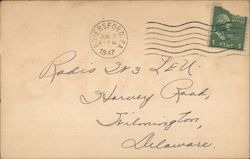 ROYERSFORD, PA.
JUN 2
1947
1 CENT 1
Radio W3 LEU.
Harvey Road,
Wilmington,
Delaware.